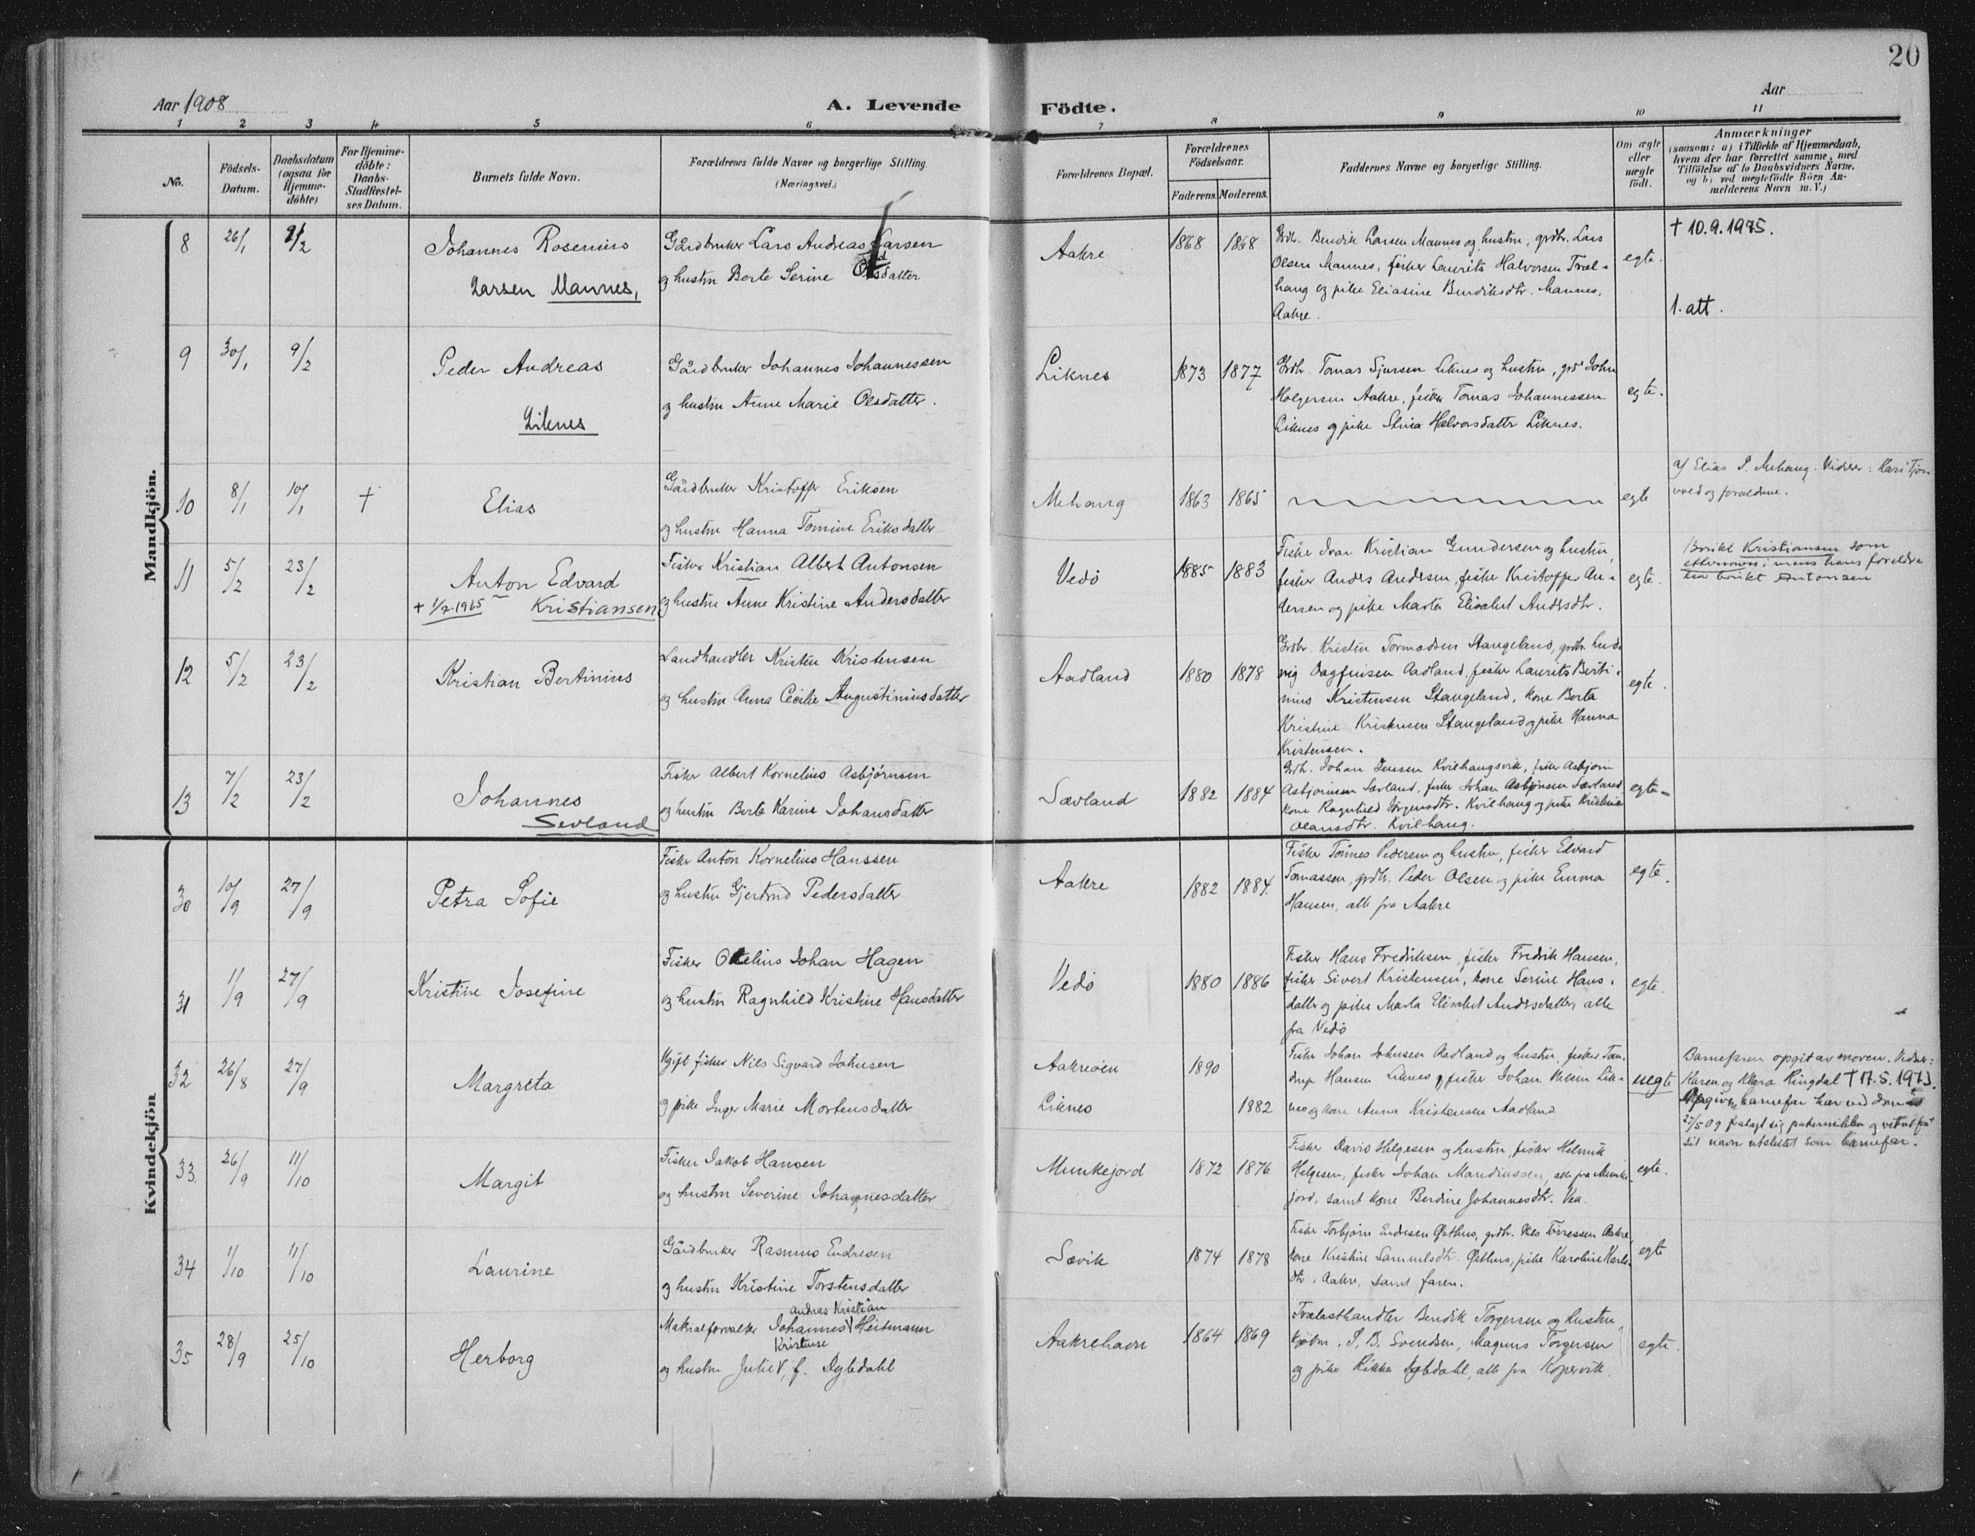 20
Aar 1908
A. Levende
Födte.
Aar
1 2 3 4 5 6 7 8 9 10 11
No.
Födsels-Datum.
Daabsdatum (ogsaa for Hjemme-döbte)
For Hjemme-döbte: Daabs-Stadfæstel-ses Datum.
Barnets fulde Navn.
Forældrenes fulde Navne og borgerlige Stilling. (Næringsvei.)
Forældrenes Bopæl.
Forældrenes Födselsaar.
Faderens. Moderens.
Faddernes Navne og borgerlige Stilling.
Om ægte eller uægte födt.
Anmærkninger
(saasom: a) i Tilfælde af Hjemmedaab, hvem der har forrettet samme, med Tilföielse af to Daabsvidners Navne, og b) ved uægtefödte Börn Anmelderens Navn m. V.)
Mandkjön.
8 26/1 9/2 Johannes Rosenius
Larsen Mannes,
Gårdbruker Lars Andreas Larsen
og hustru Berte Serine Olsdatter
Aakre 1868 1868
Grdbr. Bendik Larsen Mannes og hustru, grdbr. Lars
Olsen Mannes, fisker Laurits Halvorsen Træl-
hang og pike Eliasine Bendiksdtr. Mannes,
Aakre.
egte.
† 10.9.1975.
1. att.
9 30/1 9/2 Peder Andreas
Liknes
Gårdbruker Johannes Johannessen
og hustru Anne Marie Olsdatter.
Liknes 1873 1877
Grdbr. Tomas Sjursen Liknes og hustru, John
Holgersen Aakre, fisker Tomas Johannessen
Liknes og pike Halvorsdatter Liknes.
egte.
10 8/1 10/1 † Elias
Gårdbruker Kristoffer Eriksen
og hustru Hanna Tomine Eriksdatter
Mehaug 1863 1865
egte
af Elias P. Mehaug. Vidner: Kari
og forældrene.
11 5/2 23/2 Anton Edvard
† 1/2 1965 Kristiansen
Fisker Kristian Albert Antonsen
og hustru Anne Kristine Andersdatter
Vedö 1885 1883
Fisker Ivar Kristian Gundersen og hustru,
fisker Anders Andersen, fisker Kristoffer An-
dersen og pike Marta Elisabet Andersdtr.
egte.
Brukt Kristiansen som
efternavn; mens hans foreldre
har brukt Antonsen
12 5/2 23/2 Kristian Bertinius
Landhandler Kristen Kristensen
og hustru Anna Cecilie Augustiniusdatter
Aadland 1880 1878
Grdbr. Kristen Tormodsen Stangeland, grdbr. Lud-
vig Dagfinsen Aadland, fisker Laurits Berti-
nius Kristensen Stangeland, kone Berta
Kristine Kristensen Stangeland og pike Hanna
Kristensen.
egte.
13 7/2 23/2 Johannes
Sevland
Fisker Albert Kornelius Asbjörnsen
og hustru Berte Karine Johansdatter
Sævland 1882 1884
Grdbr. Johan Jensen Kvilhaugsvik, fisker Asbjörn
Asbjörnsen Sævland, fisker Johan Asbjönsen Sævland
kone Ragnhild Jörgensdtr. Kvilhaug og pike Kristine
Olausdtr. Kvilhaug.
egte.
Kvindekjön
30 10/9 27/9 Petra Sofie
Fisker Anton Kornelius Hanssen
og hustru Gjertrud Pedersdatter
Aakre 1882 1884.
Fisker Tönnes Pedersen og hustru, fisker Edvard
Tomassen, grdbr. Peder Olsen og pike Emma
Hansen, alle fra Aakre
egte.
31 11/9 27/9 Kristine Josefine
Fisker Johan Hagen
og hustru Ragnhild Kristine Hansdatter
Vedö 1880 1886
Fisker Hans Fredriksen, fisker Fredrik Hansen,
fisker Sivert Kristensen, kone Serine Hans-
datter og pike Marta Elisabet Andersdatter, alle
fra Vedö
egte.
32 26/8 27/9 Margreta
Ugift fisker Nils Sigvard Johnsen
og pike Inger Marie Mortensdatter
Aakreöen 1890
Liknes 1882
Fisker Johan Johnsen Aadland og hustru, fisker
Hansen Liknes og fisker Johan Lik-
nes og kone Anna Kristensen Aadland
uegte
Barnefaren opgit av moren. Vidner:
Karen og Klara Ringdal † 17.5.1973.
Opgivne barnefar har ved dom
27/5 09 fralagt sig paterniteten og
sit navn utslettet som barnefar.
33. 26/9 11/10 Margit
Fisker Jakob Hansen
og hustru Severine Johannesdatter
Munkejord 1872 1876
Fisker David Helgesen og hustru, fisker Helmik
Helgesen, fisker Johan Mandiussen, alle fra Munke-
jord, samt kone Berdine Johannesdtr. Vea.
egte.
34 1/10 11/10 Laurine
Gårdbruker Rasmus Endresen
og hustru Kristine Torstensdatter
Sævik 1874 1878
Fisker Torbjörn Endresen Östhus, grdbr. Nils Aakre,
kone Kristine Samuelsdtr. Östhus, pike Karoline Karls-
dtr. Aakre, samt faren.
egte
35 28/9 25/10 Herborg
Andreas Kristian
Johannes Heitmann
Kristense
og hustru Julie, f. Dybdahl
Aakrehavn 1864 1869
Trælasthandler Bendik Torgersen og hustru,
kjøbm. P. B. Svendsen, Magnus Torgersen
og pike Rikka Dybdahl, alle fra Kopervik.
egte.